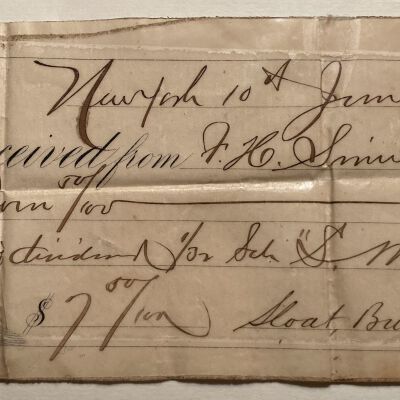 New York 10th June
ceived from F. H. Simm
00/100
dividend 1/32 Sch "S. M
$ 7 00/100 Sloat, Bu